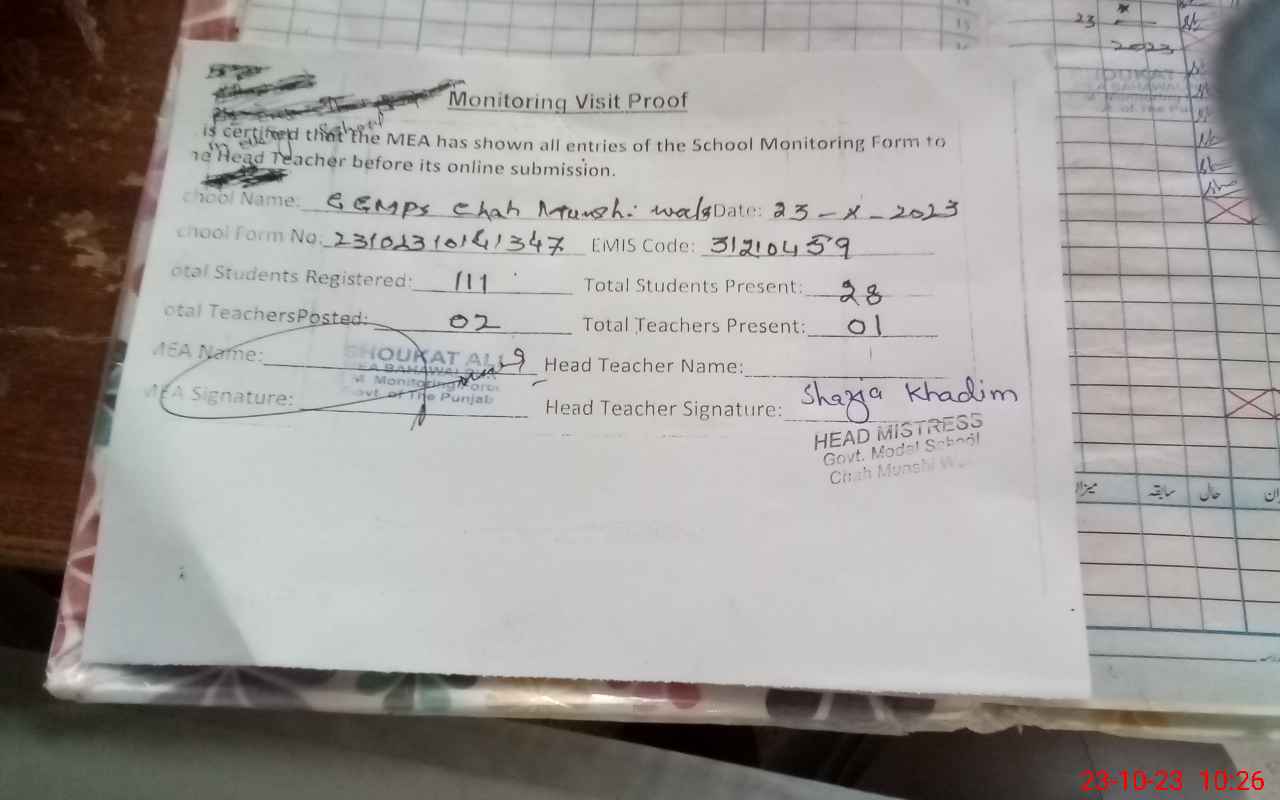 Monitoring Visit Proof
School
is certified that the MEA has shown all entries of the School Monitoring Form to
Head Teacher before its online submission.
chool Name: GGMPS Chah Munshi wala Date: 23-X-2023
chool Form No: 23102310141347 EMIS Code: 31210459
otal Students Registered: 111 Total Students Present: 28
otal TeachersPosted: 02 Total Teachers Present: 01
MEA Name: SHOUKAT ALI Head Teacher Name:
Monitoring Force
Govt. of The Punjab
MEA Signature: Head Teacher Signature: Shazia Khadim
HEAD MISTRESS
Govt. Model School
Chah Munshi
23
2023
SHOUKAT
میزان سابقہ حال
23-10-23 10:26